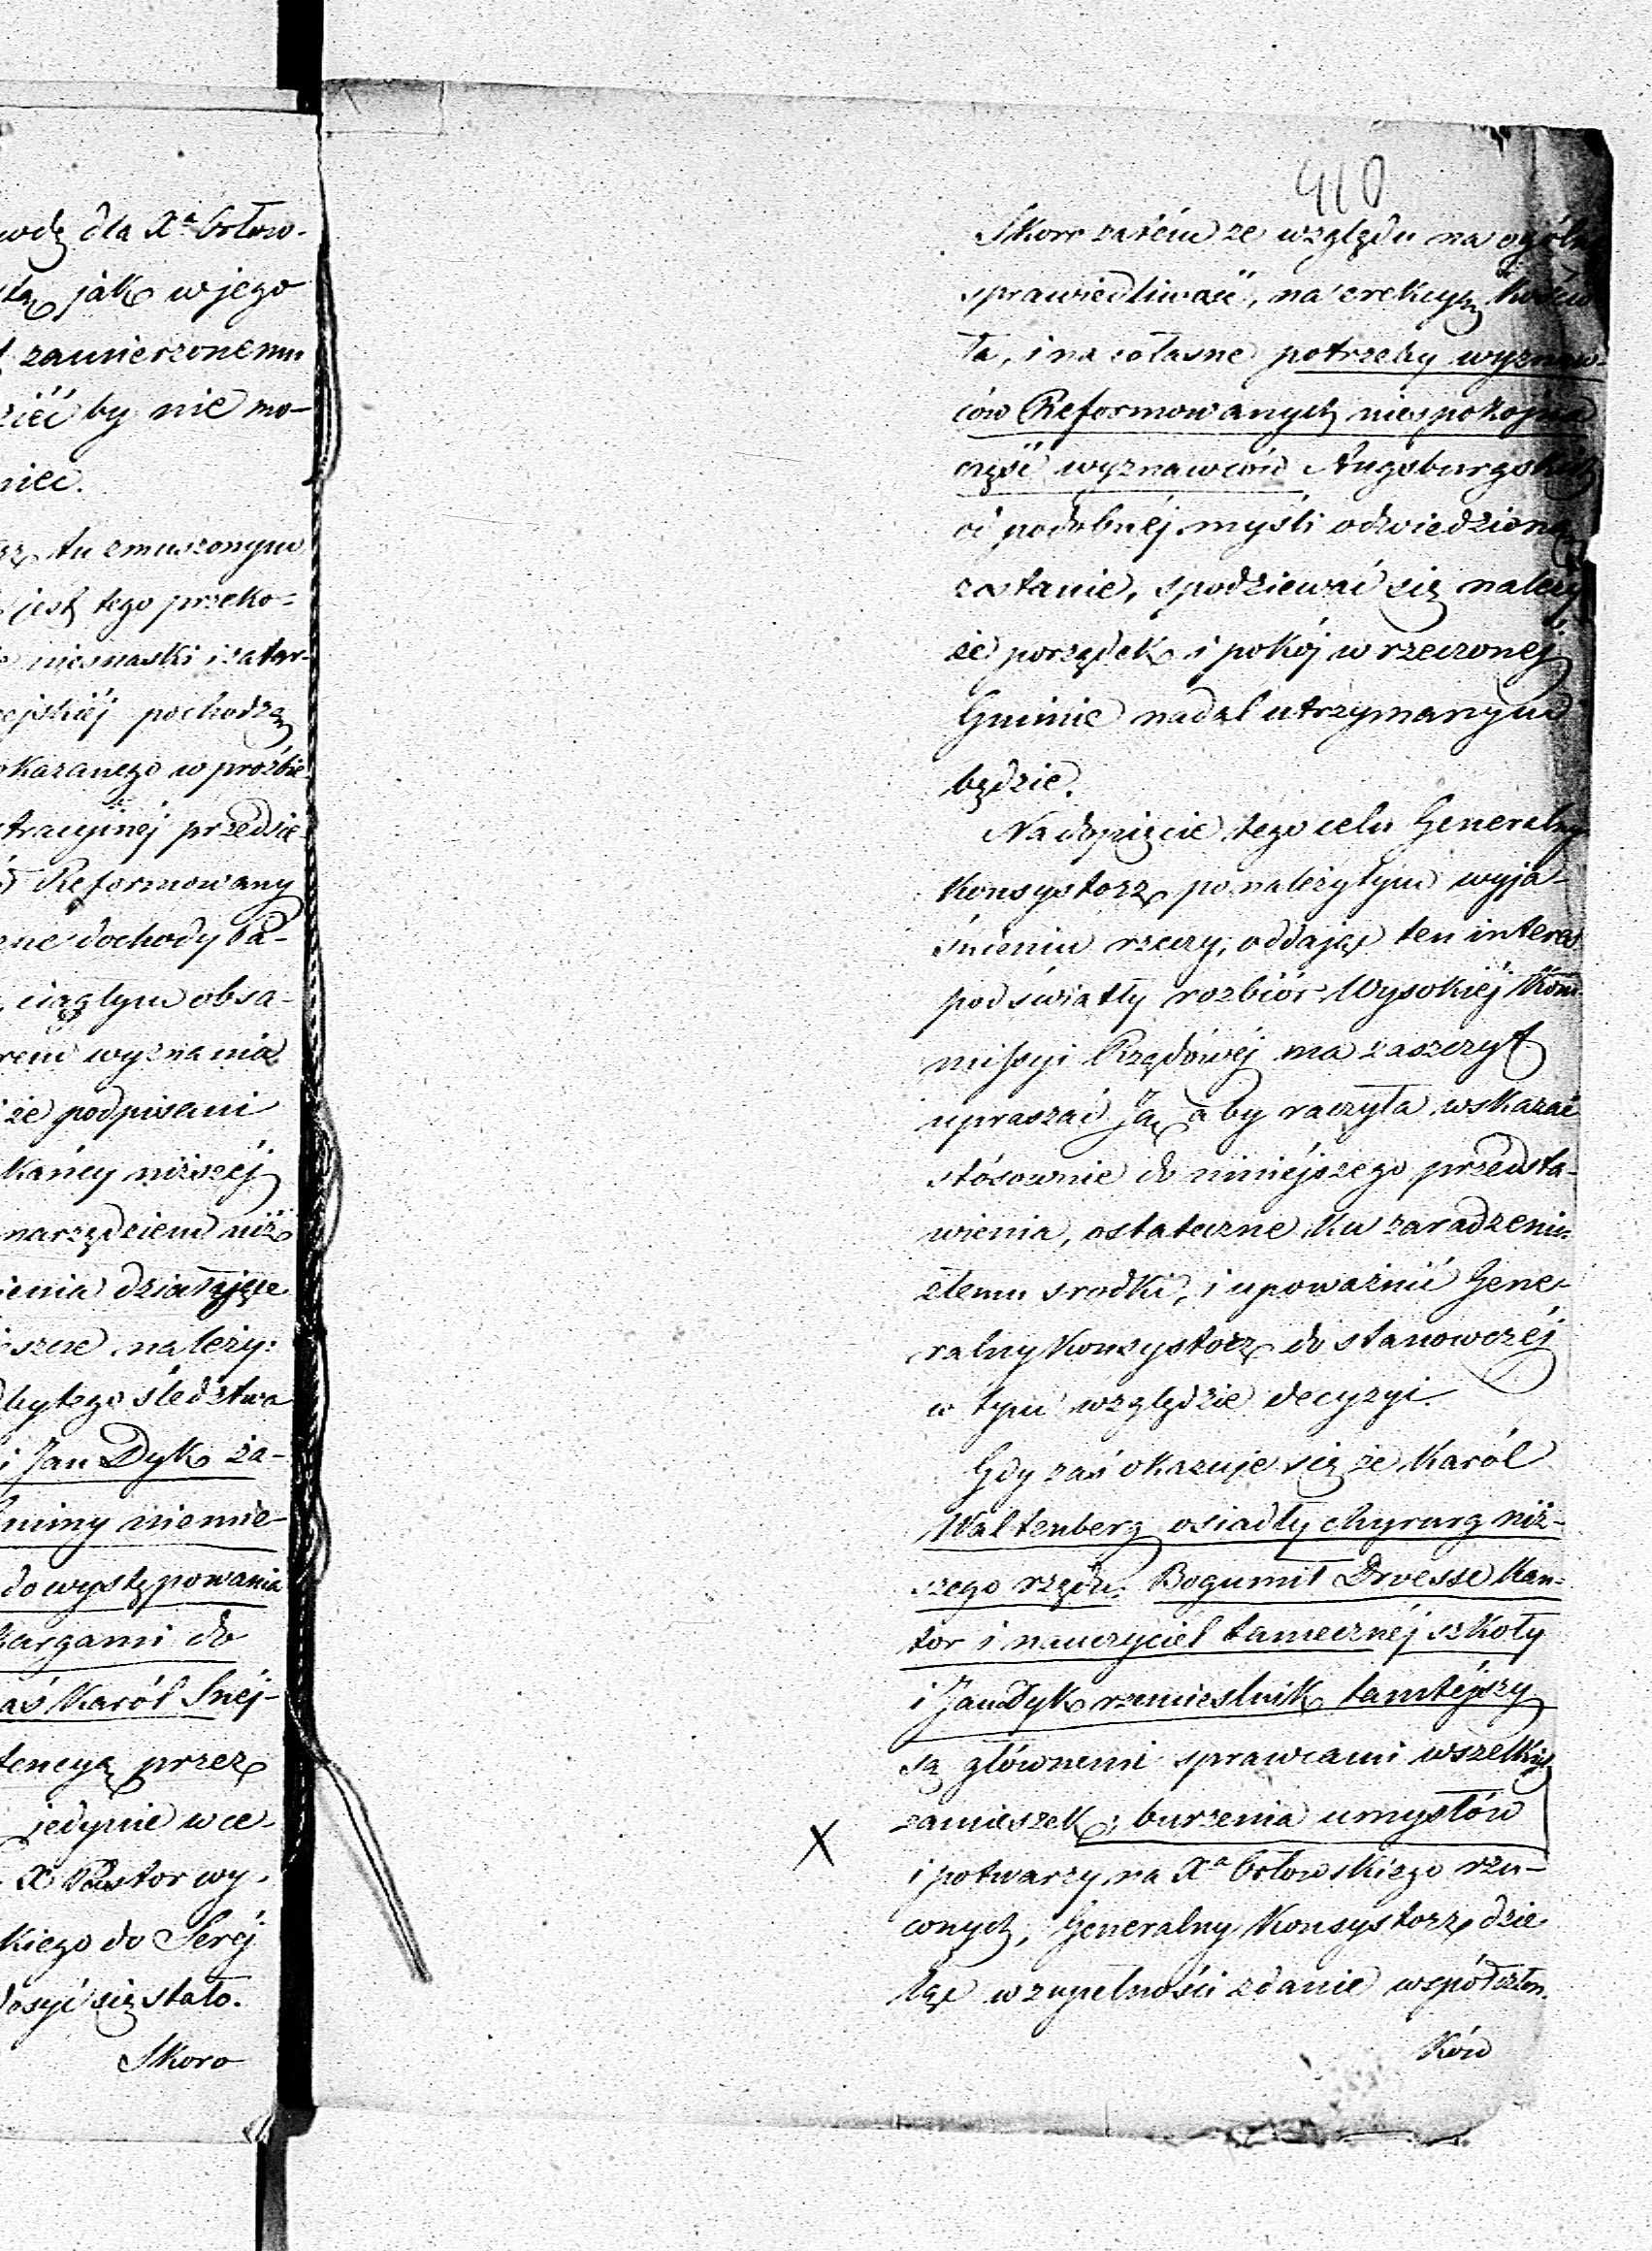 wdę dla Xa Orłow-
jak w jego
zamierzonemu
by nie mo-
niec.
tu zmuszonym
jest tego przeko-
niesnaski i zatar-
pochodzą
okazanego w prośbie
przedsie
Reformowany
dochody Pa-
ciągłym obsa-
wyznania
że podpisani
niższéj
narzędziem niż
działające
należy:
śledztwa
i Jan Dyk za-
niemie-
do występowania
do
Karól Snéj-
przez
jedynie w ce-
X Pastor wy-
kiego do Seréj
się stało.
Skoro
410
Skoro zatém ze względu na ogólną
sprawiedliwość, na erekcyą Kościo-
ła, i na własne potrzeby wyznaw-
ców Reformowanych niespokojna
część wyznawców Augsburgskich
od podobnéj myśli odwiedzioną
zostanie, spodziewać się należy
że porządek i pokój w rzeczonéj
Gminie nadal utrzymanym
będzie.
Na dopięcie tego celu Generalny
Konsystorz po należytym wyja-
śnieniu rzeczy, oddając ten interes
pod światły rozbiór Wysokiéj Kom-
missyi Rządowéj ma zaszczyt
upraszać Ją, aby raczyła wskazać
stósownie do niniéjszego przedsta-
wienia, ostateczne ku zaradzeniu
złemu srodki, i upoważnić Gene-
ralny Konsystorz do stanowczéj
w tym względzie decyzyi.
Gdy zaś okazuje się że Karól
Waltenberg osiadły chyrurg niż-
szego rzędu, Bogumił Drvesse Kan-
tor i nauczyciel tamecznéj szkoły
i Jan Dyk rzemieslnik tamtéjszy
są głównemi sprawcami wszelkich
zamieszek, burzenia umysłów
X
i potwarzy na Xa Orłowskiego rzu-
conych, Generalny Konsystorz dzie-
ląc w zupełności zdanie współczłon-
ków